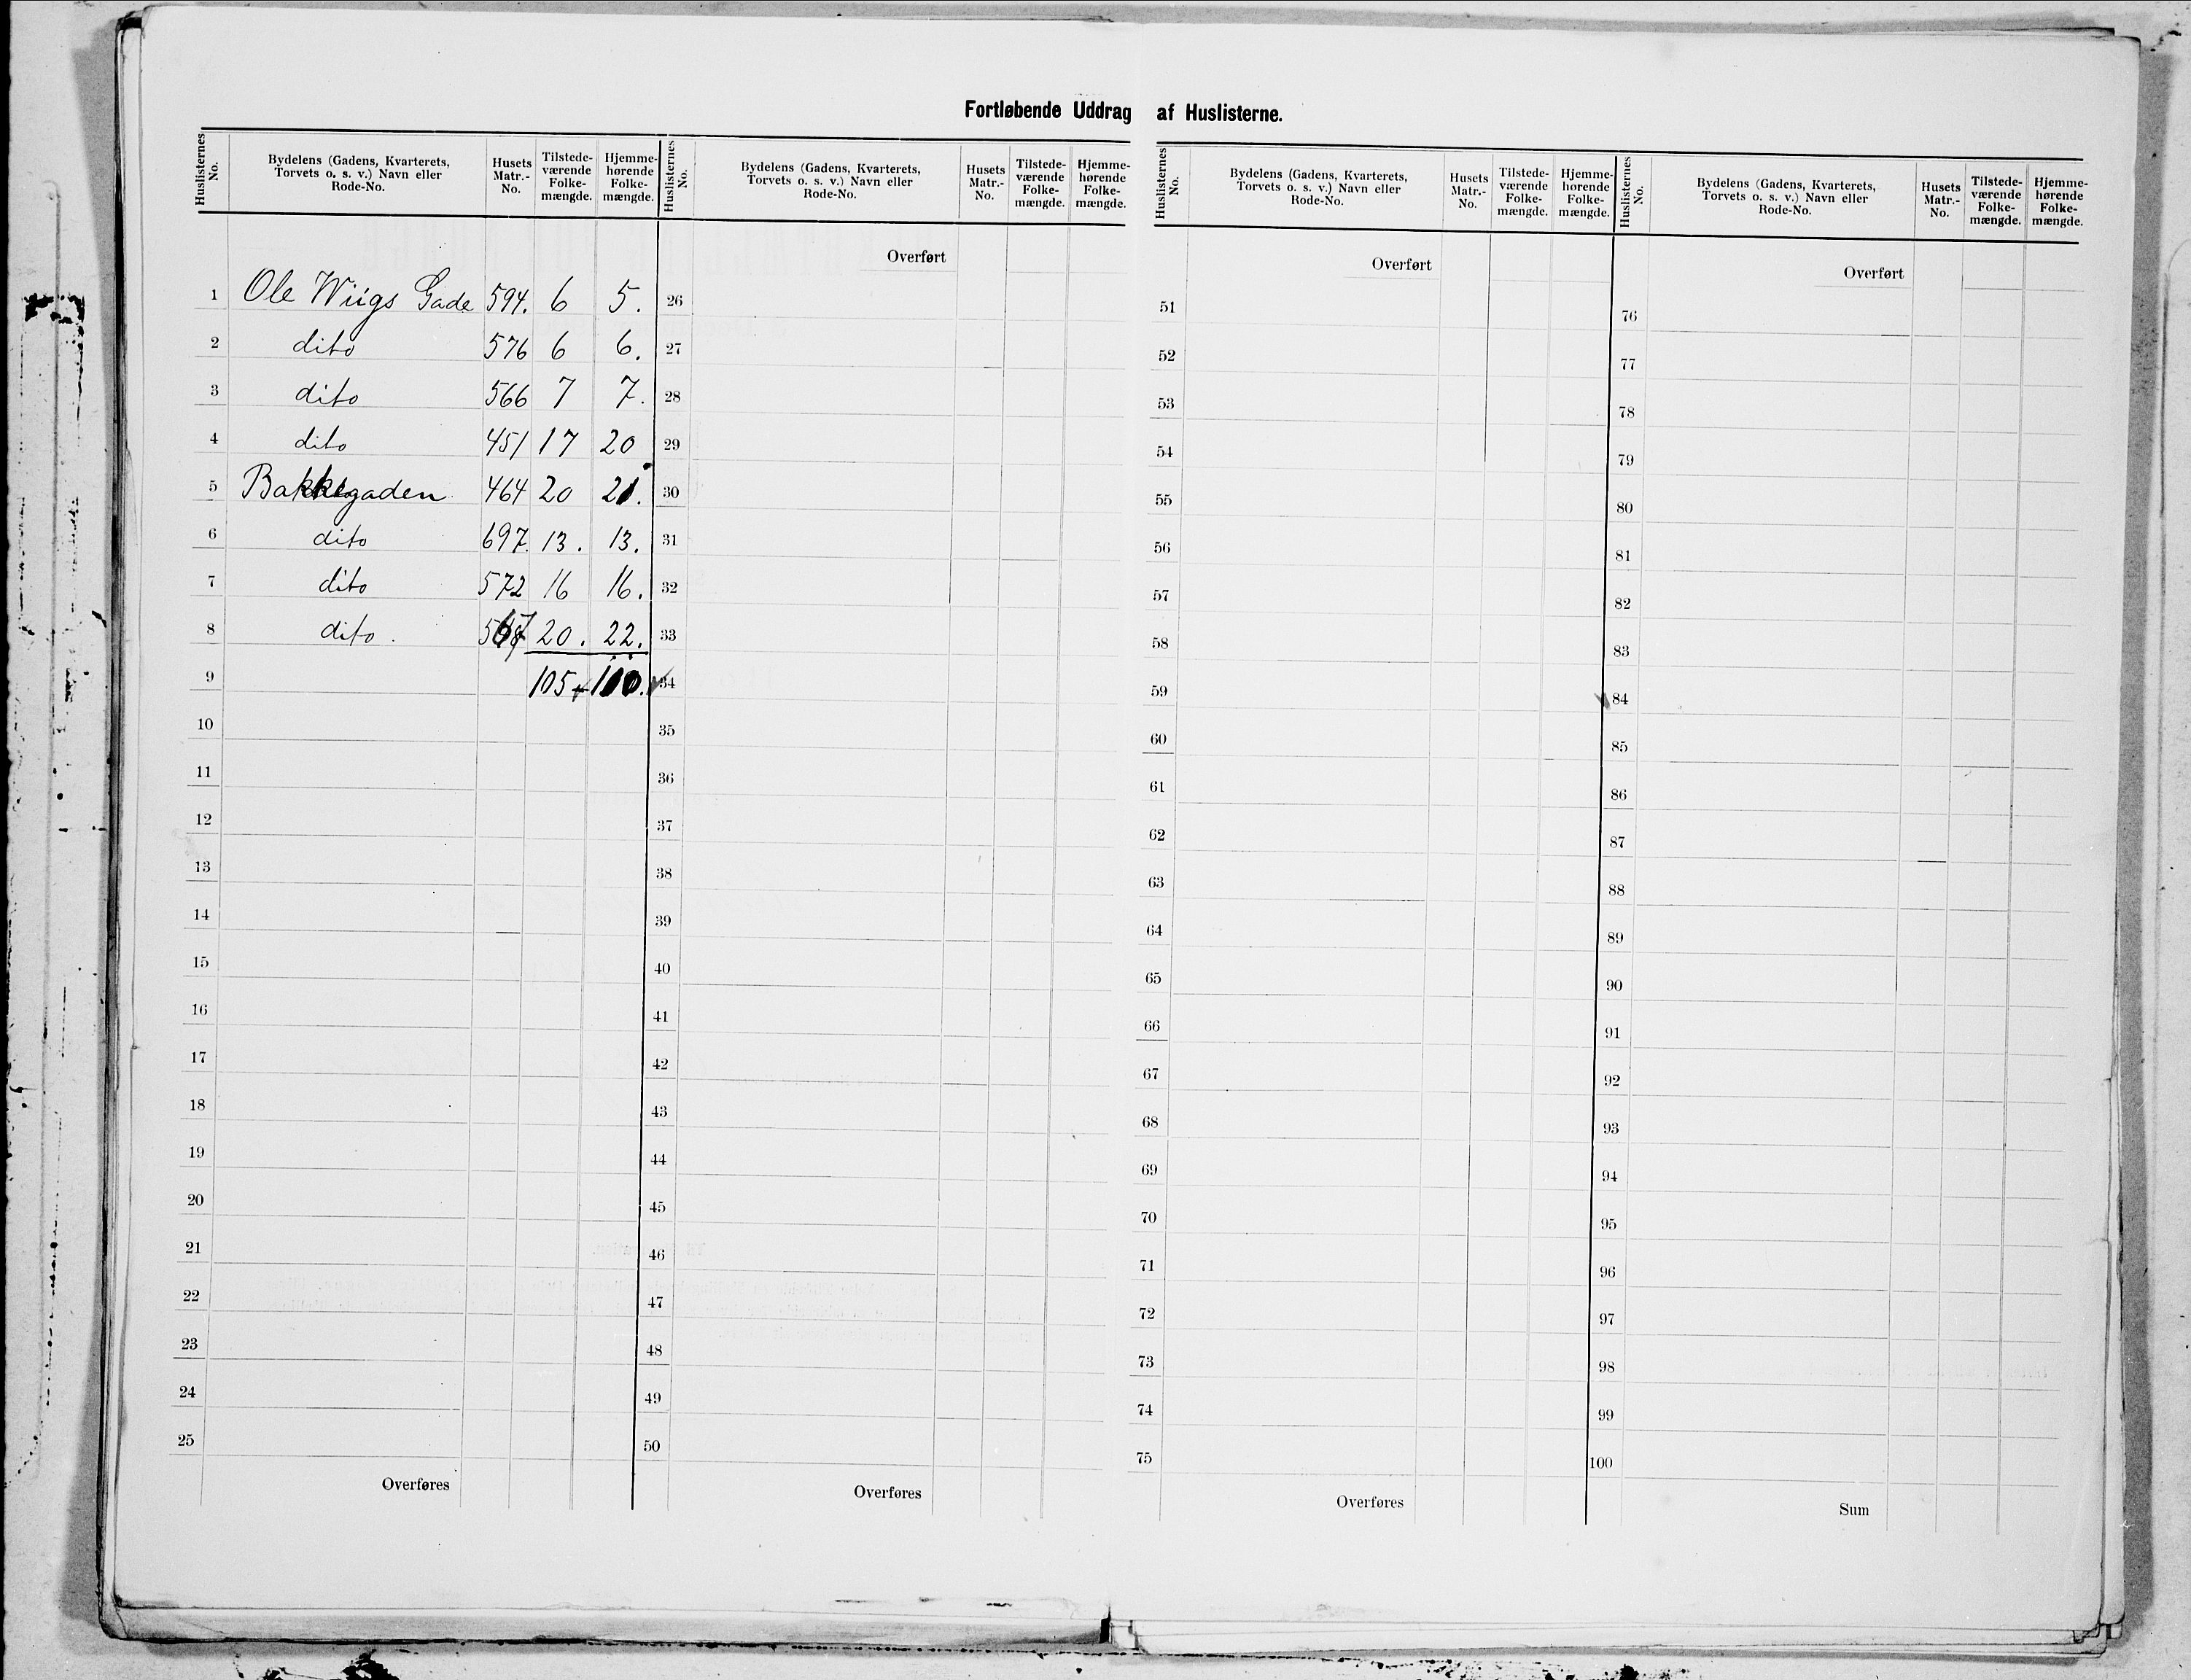 Fortløbende Uddrag af Huslisterne.
Huslisternes No. Bydelens (Gadens, Kvarterets, Torvets o. s. v.) Navn eller Rode-No. Husets Matr.-No. Tilstedeværende Folkemængde. Hjemmehørende Folkemængde.
1 Ole Wiigs Gade 594. 6 5.
2 dito 576 6 6.
3 dito 566 7 7.
4 dito 451 17 20
5 Bakkegaden 464 20 21.
6 dito 697. 13. 13.
7 dito 572 16 16.
8 dito. 20. 22.
9 105 110.
10
11
12
13
14
15
16
17
18
19
20
21
22
23
24
25
Overføres
Huslisternes No. Bydelens (Gadens, Kvarterets, Torvets o. s. v.) Navn eller Rode-No. Husets Matr.-No. Tilstede-værende Folke-mængde. Hjemme-hørende Folke-mængde.
Overført
26
27
28
29
30
31
32
33
34
35
36
37
38
39
40
41
42
43
44
45
46
47
48
49
50
Overføres
Huslisternes No. Bydelens (Gadens, Kvarterets, Torvets o. s. v.) Navn eller Rode-No. Husets Matr.-No. Tilstede-værende Folke-mængde. Hjemme-hørende Folke-mængde.
Overført
51
52
53
54
55
56
57
58
59
60
61
62
63
64
65
66
67
68
69
70
71
72
73
74
75
Overføres
Huslisternes No. Bydelens (Gadens, Kvarterets, Torvets o. s. v.) Navn eller Rode-No. Husets Matr.-No. Tilstede-værende Folke-mængde. Hjemme-hørende Folke-mængde.
Overført
76
77
78
79
80
81
82
83
84
85
86
87
88
89
90
91
92
93
94
95
96
97
98
99
100
Sum